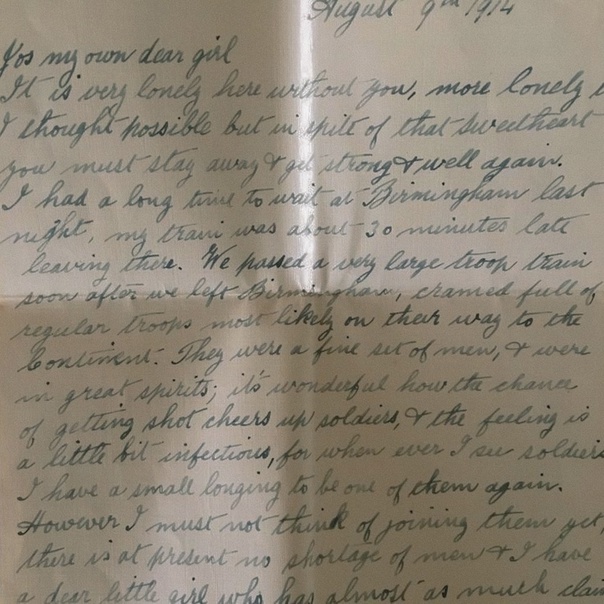 August 9th 1914
For my own dear girl
It is very lonely here without you, more lonely
I thought possible but in spite of that sweetheart
you must stay away & get strong & well again.
I had a long time to wait at Birmingham last
night, my train was about 30 minutes late
leaving there. We passed a very large troop train
soon after we left Birmingham, cramed full of
regular troops most likely on their way to the
Continent. They were a fine set of men, & were
in great spirits; it's wonderful how the chance
of getting shot cheers up soldiers, & the feeling is
a little bit infectious, for when ever I see soldiers
I have a small longing to be one of them again.
However I must not think of joining them yet,
there is at present no shortage of men & I have
a dear little girl who has almost as much claim